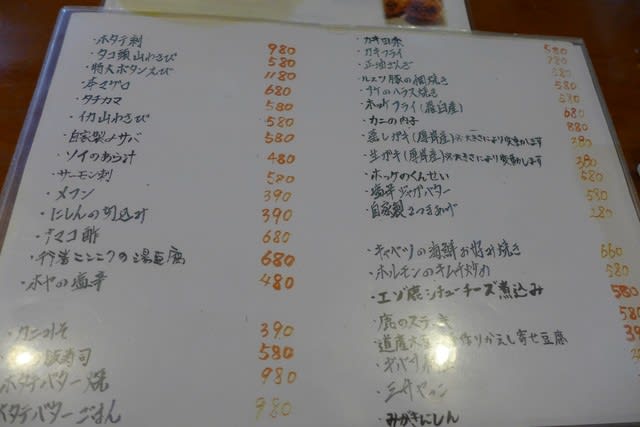 ・ホタテ刺 980
・タコ頭山わさび 580
・特大ボタンえび 1180
・本マグロ 680
・タチカマ 580
・イカ山わさび 580
・自家製〆サバ 580
・ソイのあら汁 480
・サーモン刺 580
・メフン 390
・にしんの切込み 390
・ナマコ酢 680
ニンニクの湯豆腐 680
・ホヤの塩辛 480
・カニみそ 390
飯寿司 580
ホタテバター焼 980
ホタテバターごはん 980
・カキ 580
・カキフライ 780
・正油ざんぎ 580
・ルスツ豚の網焼き 580
・サケのハラス焼き 580
・ホッケフライ(羅臼産) 680
・カニの内子 880
・蒸しガキ(厚岸産)※大きさにより変動します 380
・生ガキ(厚岸産)※大きさにより変動します 380
・ホッケのくんせい 580
・塩辛ジャガバター 580
・自家製さつまあげ 280
・キャベツの海鮮お好み焼き 660
・ホルモンのキムチ炒め 580
・エゾ鹿シチューチーズ煮込み 580
・鹿のステーキ 580
・道産大豆 作りかえし寄せ豆腐
・みがきにしん